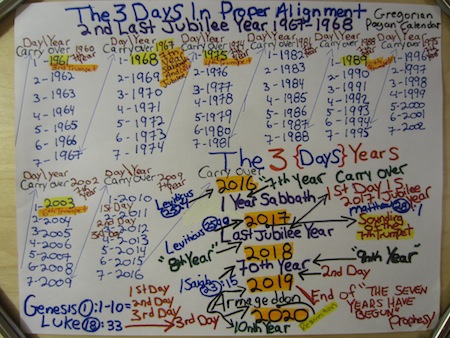 The 3 Days In Proper Alignment
2nd Last Jubilee Year 1967-1968
Gregorian
Pagan Calendar
Day/Year
Carry over 1960
1961
2nd Trumpet
2-1962
3-1963
4-1964
5-1965
6-1966
7-1967
Day/Year
Carry Over 1967
1-1968
2-1969
3-1970
4-1971
5-1972
6-1973
7-1974
Day/Year
Carry over 1974
1-1975
2-1976
3-1977
4-1978
5-1979
6-1980
7-1981
Day/Year
Carry over 1981
1-1982
2-1983
3-1984
4-1985
5-1986
6-1987
7-1988
Day/Year
Carry over 1988
1-1989
2-1990
3-1991
4-1992
5-1993
6-1994
7-1995
Day/Year
Carry over 1995
1-1996
2-1997
3-1998
4-1999
5-2000
6-2001
7-2002
Day/Year
Carry over 2002
2003
2-2004
3-2005
4-2006
5-2007
6-2008
7-2009
Day/Year
Carry over 2009
1-2010
2-2011
3-2012
4-2013
5-2014
6-2015
7-2016
1st Day
2nd Day
3rd Day
The 3 {Days} Years
Carry Over
2016
7th Year Carry Over
Leviticus
25:4
1 Year Sabbath
1st Day Jubilee
2017 Year
Leviticus
2017
Last Jubilee Year
Matthew
Sounding
of the
7th Trumpet
"8th Year"
2018
"9nth Year"
70th Year
2nd Day
Isaiah 23:15
2019
Armageddon
2020
10nth Year
End of "THE SEVEN
YEARS HAVE
BEGUN"
Prophesy
Genesis 1:1-10=
Luke 18:33
1st Day
2nd Day
3rd Day
3rd Day